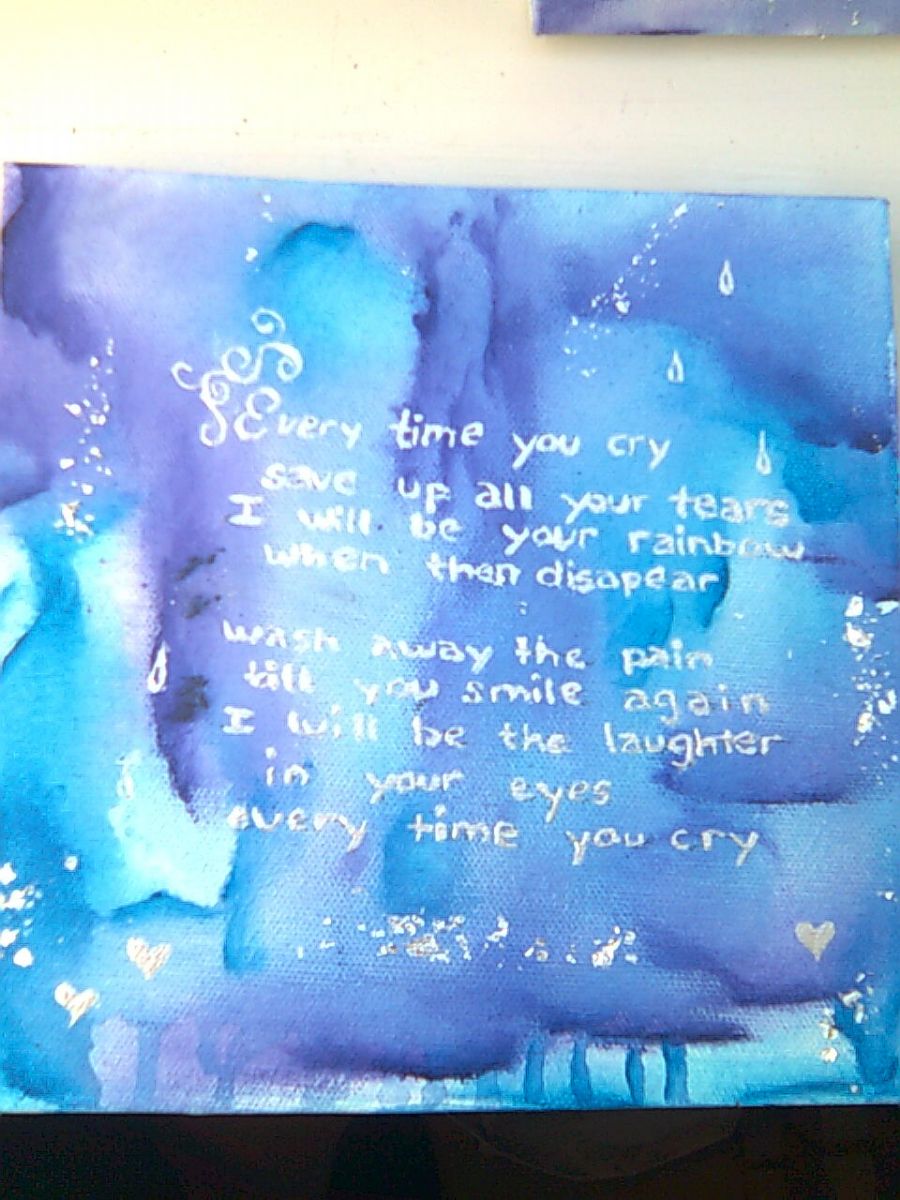 Every time you cry
save up all your tears
I will be your rainbow
when then disapear
wash away the pain
till you smile again
I will be the laughter
in your eyes
every time you cry